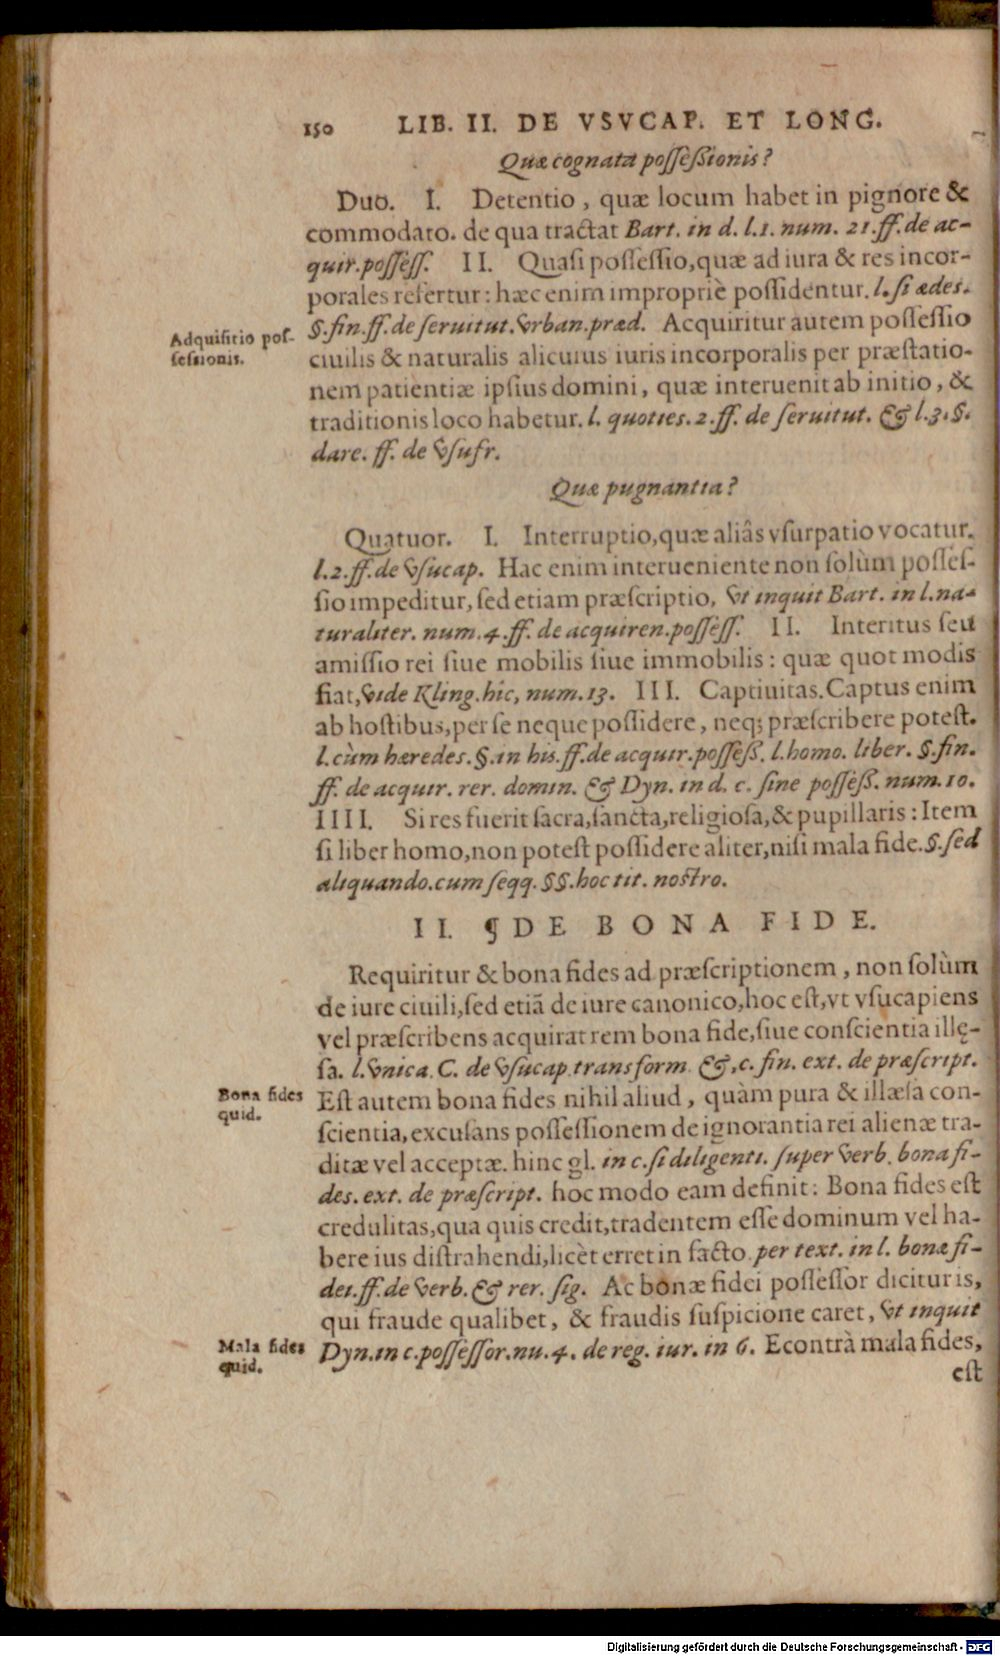 150 LIB. II. DE VSVCAP. ET LONG.
Quæ cognata possessionis?
Duo. I. Detentio, quæ locum habet in pignore &
commodato. de qua tractat Bart. in d. l.1. num. 21. ff. de ac-
quir. possess. II. Quasi possessio, quæ ad iura & res incor-
porales refertur: hæc enim impropriè possidentur. l. si ædes.
Adquisitio pos-
sessionis.
§. fin. ff. de seruitut. vrban. præd. Acquiritur autem possessio
ciuilis & naturalis alicuius iuris incorporalis per præstatio-
nem patientiæ ipsius domini, quæ interuenit ab initio, &
traditionis loco habetur. l. quoties. 2. ff. de seruitut. & l.3. §.
dare. ff. de vsufr.
Quæ pugnantia?
Quatuor. I. Interruptio, quæ aliâs vsurpatio vocatur.
l.2. ff. de vsucap. Hac enim interueniente non solùm posses-
sio impeditur, sed etiam præscriptio, vt inquit Bart. in l. na-
turaliter. num. 4. ff. de acquiren. possess. II. Interitus seu
amissio rei siue mobilis siue immobilis: quæ quot modis
fiat, vide Kling. hîc, num. 13. III. Captiuitas. Captus enim
ab hostibus, per se neque possidere, neq; præscribere potest.
l. cùm hæredes. §. in his. ff. de acquir. possess. l. homo. liber. §. fin.
ff. de acquir. rer. domin. & Dyn. in d. c. sine possess. num. 10.
IIII. Si res fuerit sacra, sancta, religiosa, & pupillaris: Item
si liber homo, non potest possidere aliter, nisi mala fide. §. sed
aliquando. cum seqq. §§. hoc tit. nostro.
II. ¶ DE BONA FIDE.
Requiritur & bona fides ad præscriptionem, non solùm
de iure ciuili, sed etiã de iure canonico, hoc est, vt vsucapiens
vel præscribens acquirat rem bona fide, siue conscientia illę-
sa. l. vnica. C. de vsucap. transform. &, c. fin. ext. de præscript.
Bona fides
quid.
Est autem bona fides nihil aliud, quàm pura & illæsa con-
scientia, excusans possessionem de ignorantia rei alienæ tra-
ditæ vel acceptæ. hinc gl. in c. si diligenti. super verb. bona fi-
des. ext. de præscript. hoc modo eam definit: Bona fides est
credulitas, qua quis credit, tradentem esse dominum vel ha-
bere ius distrahendi, licèt erret in facto. per text. in l. bonæ fi-
dei. ff. de verb. & rer. sig. Ac bonæ fidei possessor dicitur is,
qui fraude qualibet, & fraudis suspicione caret, vt inquit
Mala fides
quid.
Dyn. in c. possessor. nu. 4. de reg. iur. in 6. Econtrà mala fides,
est
Digitalisierung gefördert durch die Deutsche Forschungsgemeinschaft - DFG